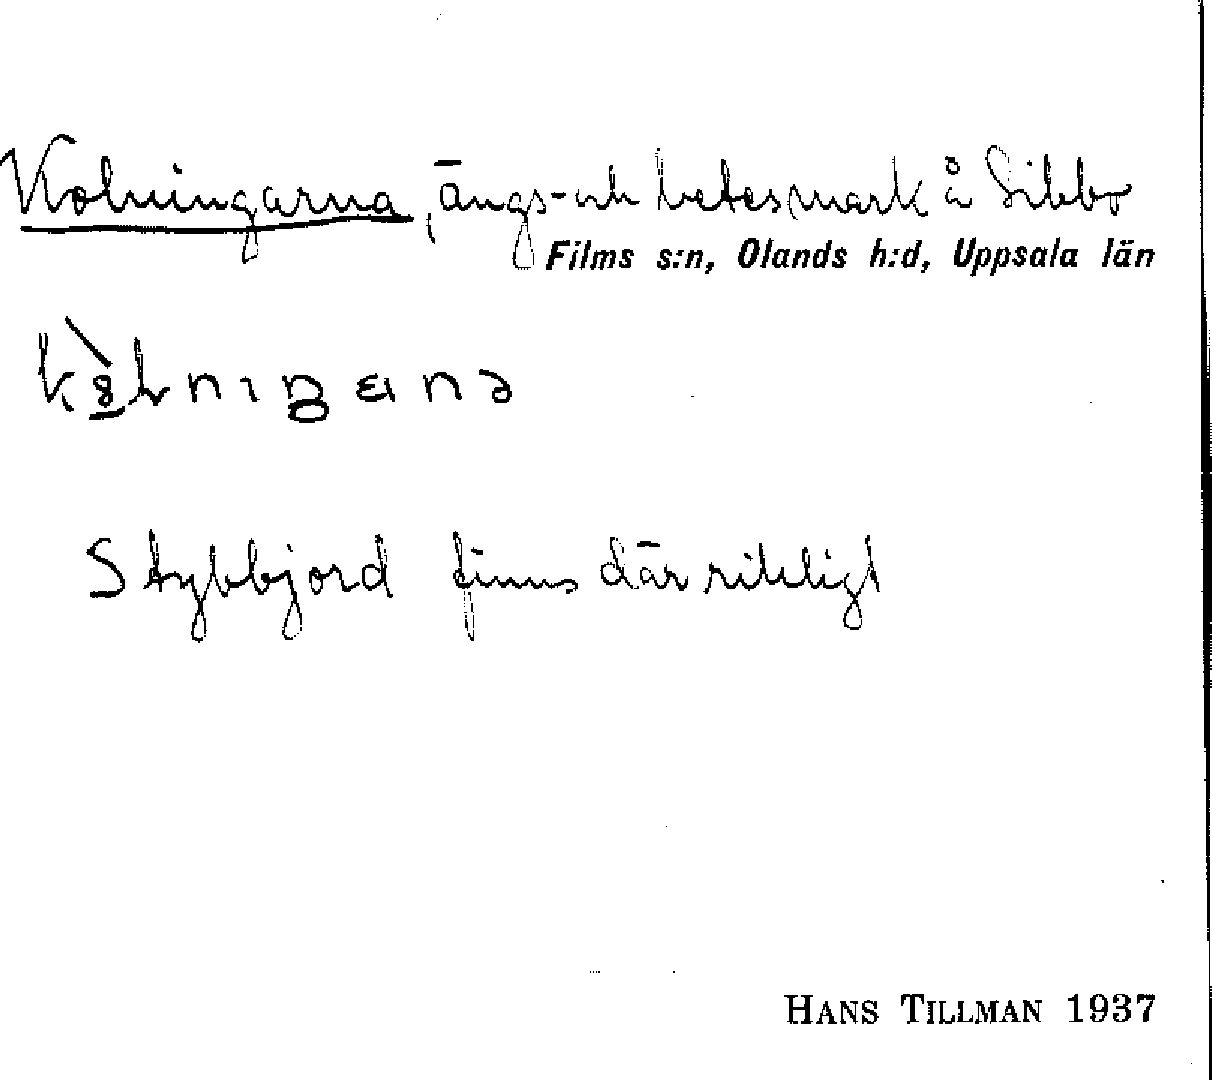 Kolningarna, ängs- och betesmark å Sibbo
Films s:n, Olands h:d, Uppsala län
Stybbjord finns där rikligt
HANS TILLMAN 1937